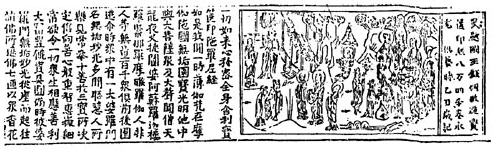 吳越國王錢俶敬造寶
篋印經八萬四千卷永
充供養時乙丑歲記
一切如來祕密全身舍利寶
篋印陀羅尼經
如是我聞一時薄伽梵在摩
伽陀國無垢園寶光明池中
與大菩薩眾及大聲聞僧天
龍藥叉揵闥婆阿蘇羅迦樓
羅緊那羅摩睺羅伽人非
人等無量百千眾俱前後圍
遶爾時眾中有一大婆羅門
名無垢妙光多聞聰慧人所
樂見常奉十善於三寶所決
定信向善心殷重智慧微細
常欲令一切眾生相應善利
大富豐饒資具圓滿時彼婆
羅門無垢妙光從座而起往
詣佛所遶佛七匝以眾香花